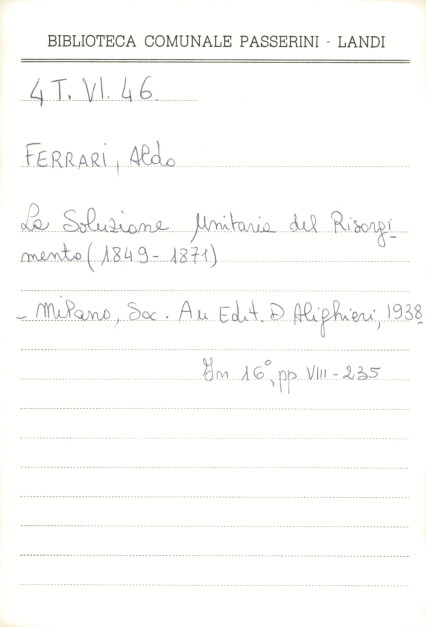 BIBLIOTECA COMUNALE PASSERINI - LANDI
4 T. VI. 46.
FERRARI, Aldo
La Soluzione Unitaria del Risorgi-
mento (1849 - 1871)
- Milano, Soc. An Edit. D Alighieri, 1938
In 16°, pp VIII - 235